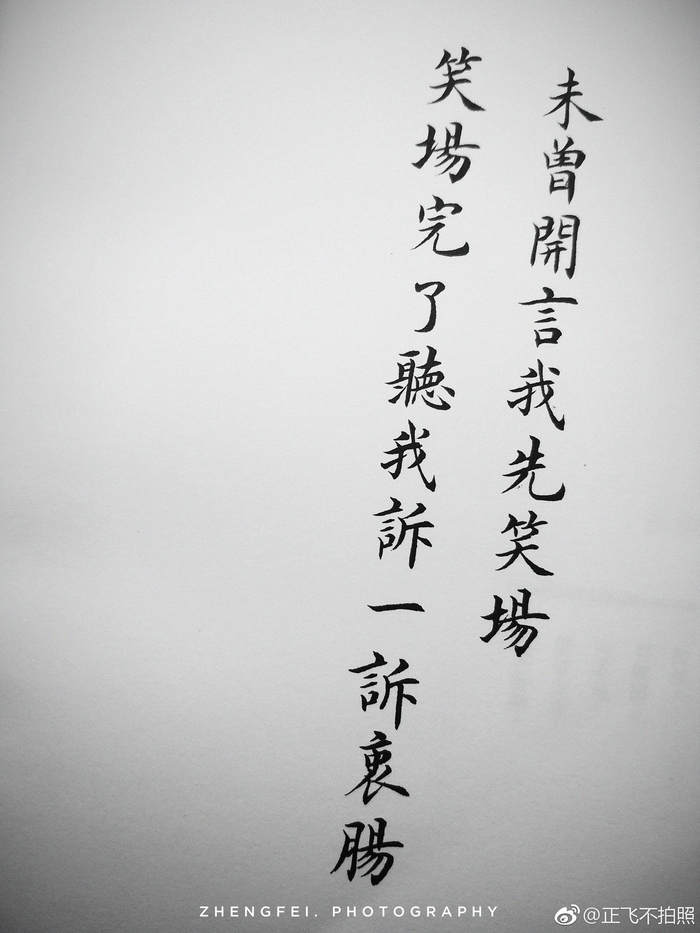 未曾開言我先笑場
笑場完了聽我訴一訴衷腸
ZHENGFEI. PHOTOGRAPHY
@正飞不拍照